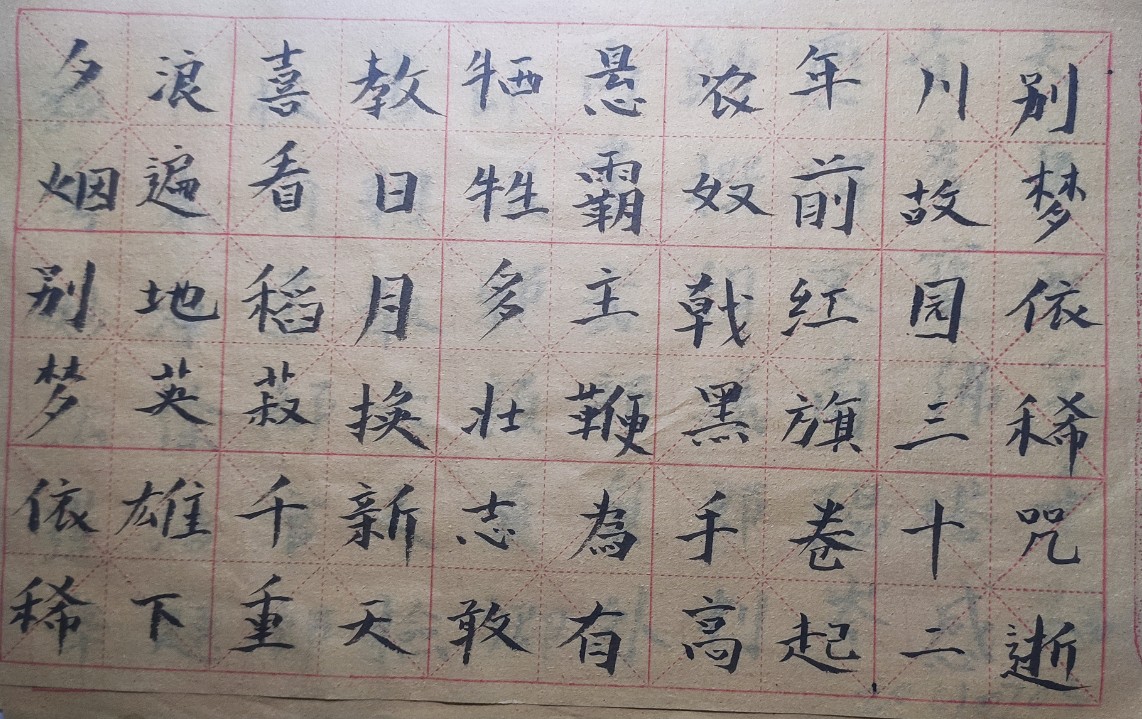 别梦依稀咒逝
川故园三十二
年前红旗卷起
农奴戟黑手高
悬霸主鞭為有
牺牲多壮志敢
教日月换新天
喜看稻菽千重
浪遍地英雄下
夕烟别梦依稀